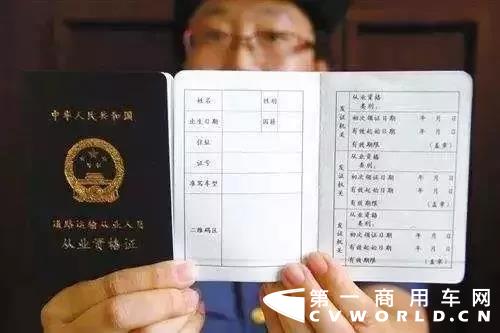 中华人民共和国
道路运输从业人员
从业资格证
姓名 性别
出生日期 国籍
住址
证号
准驾车型
二维码区
发证机关
从业资格
类别:
初次领证日期 年 月 日
有效起始日期 年 月 日
有效期限 (盖章)
发证机关
从业资格
类别:
初次领证日期 年 月 日
有效起始日期 年 月 日
有效期限 (盖章)
发证机关
从业资格
类别:
初次领证日期 年 月 日
有效起始日期 年 月 日
有效期限 (盖章)
第一商用车网
CVWORLD.CN